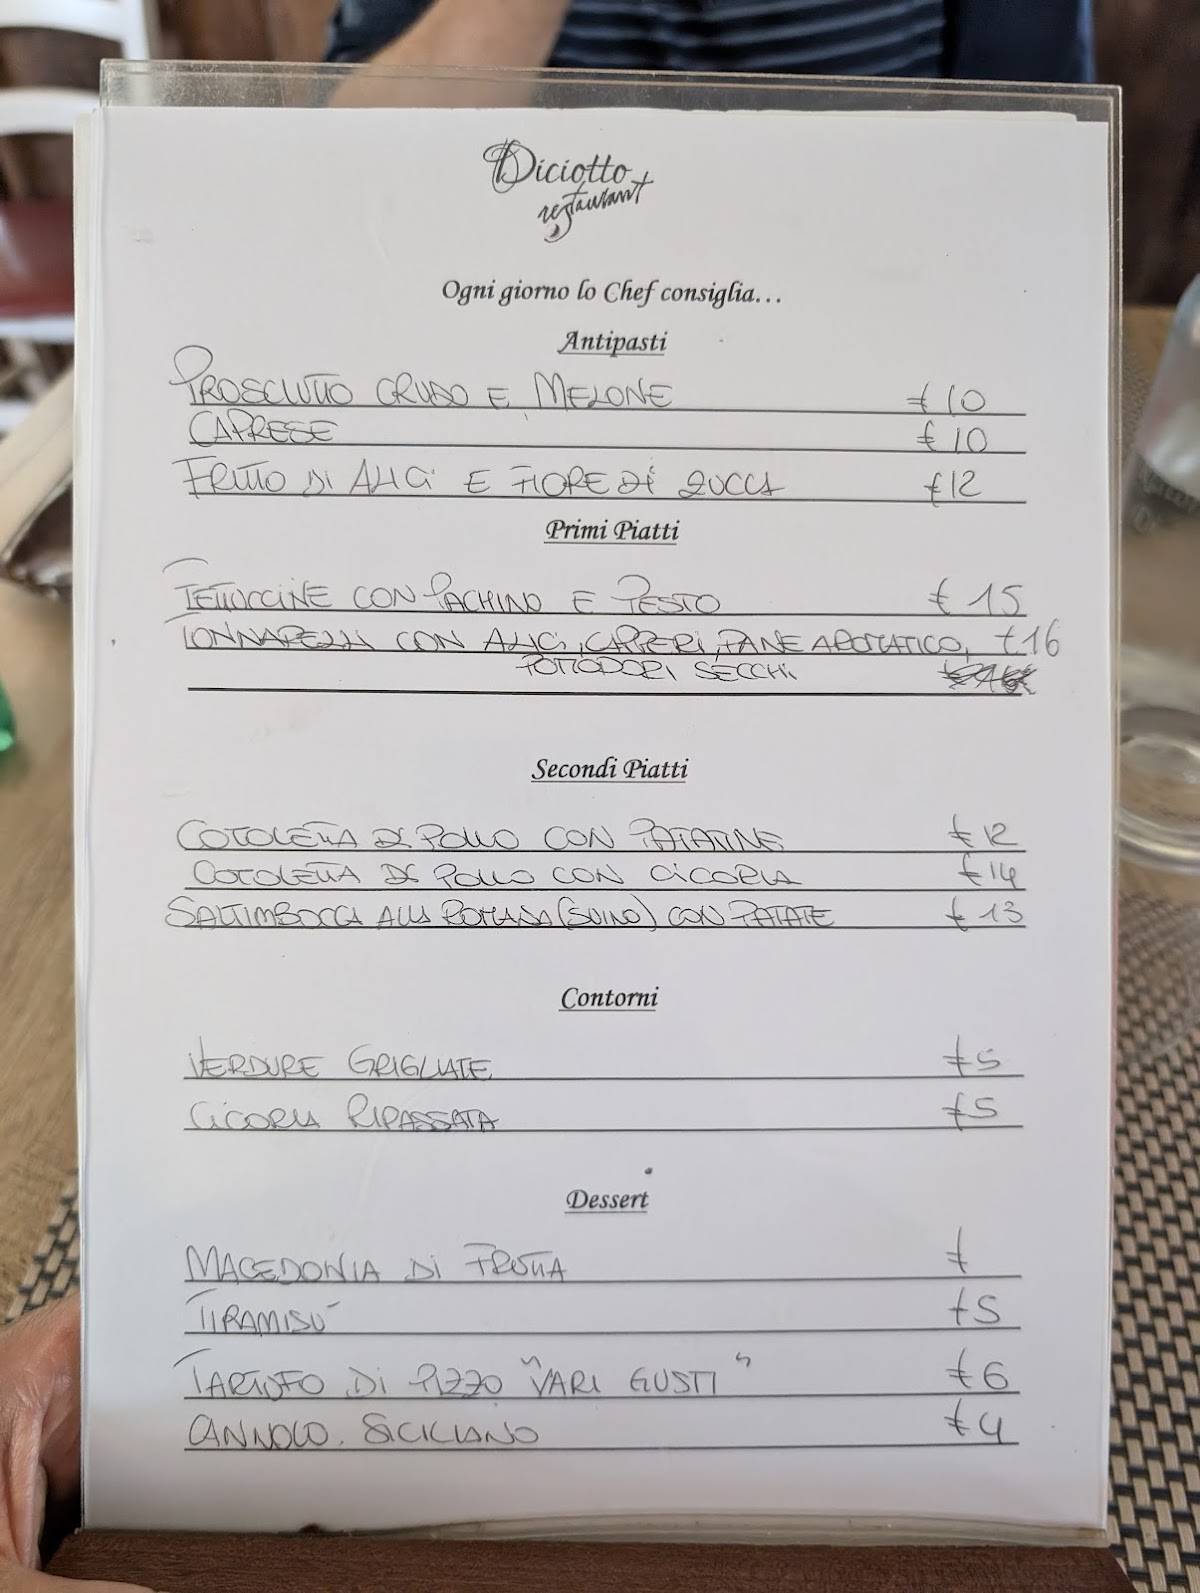 Diciotto
restaurant
Ogni giorno lo Chef consiglia...
Antipasti
PROSCIUTTO CRUDO E MELONE € 10
CAPRESE € 10
FRITTO DI ALICI E FIORE DI ZUCCA €12
Primi Piatti
FETTUCCINE CON PACHINO E PESTO € 15
TONNARELLI CON ALICI, CAPPERI, PANE AROMATICO, €16
POMODORI SECCHI
Secondi Piatti
COTOLETTA DI POLLO CON PATATINE €12
COTOLETTA DI POLLO CON CICORIA €14
SALTIMBOCCA ALLA ROMANA (SUINO) CON PATATE € 13
Contorni
VERDURE GRIGLIATE €5
CICORIA RIPASSATA €5
Dessert
MACEDONIA DI FRUTTA €
TIRAMISÚ €5
TARTUFO DI PIZZO "VARI GUSTI" €6
CANNOLO SICILIANO €4